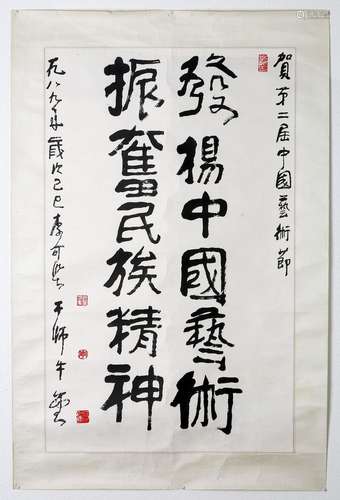 賀第二屆中國藝術節
發揚中國藝術
振奮民族精神
一九八九年歲次己巳李可染于師牛堂